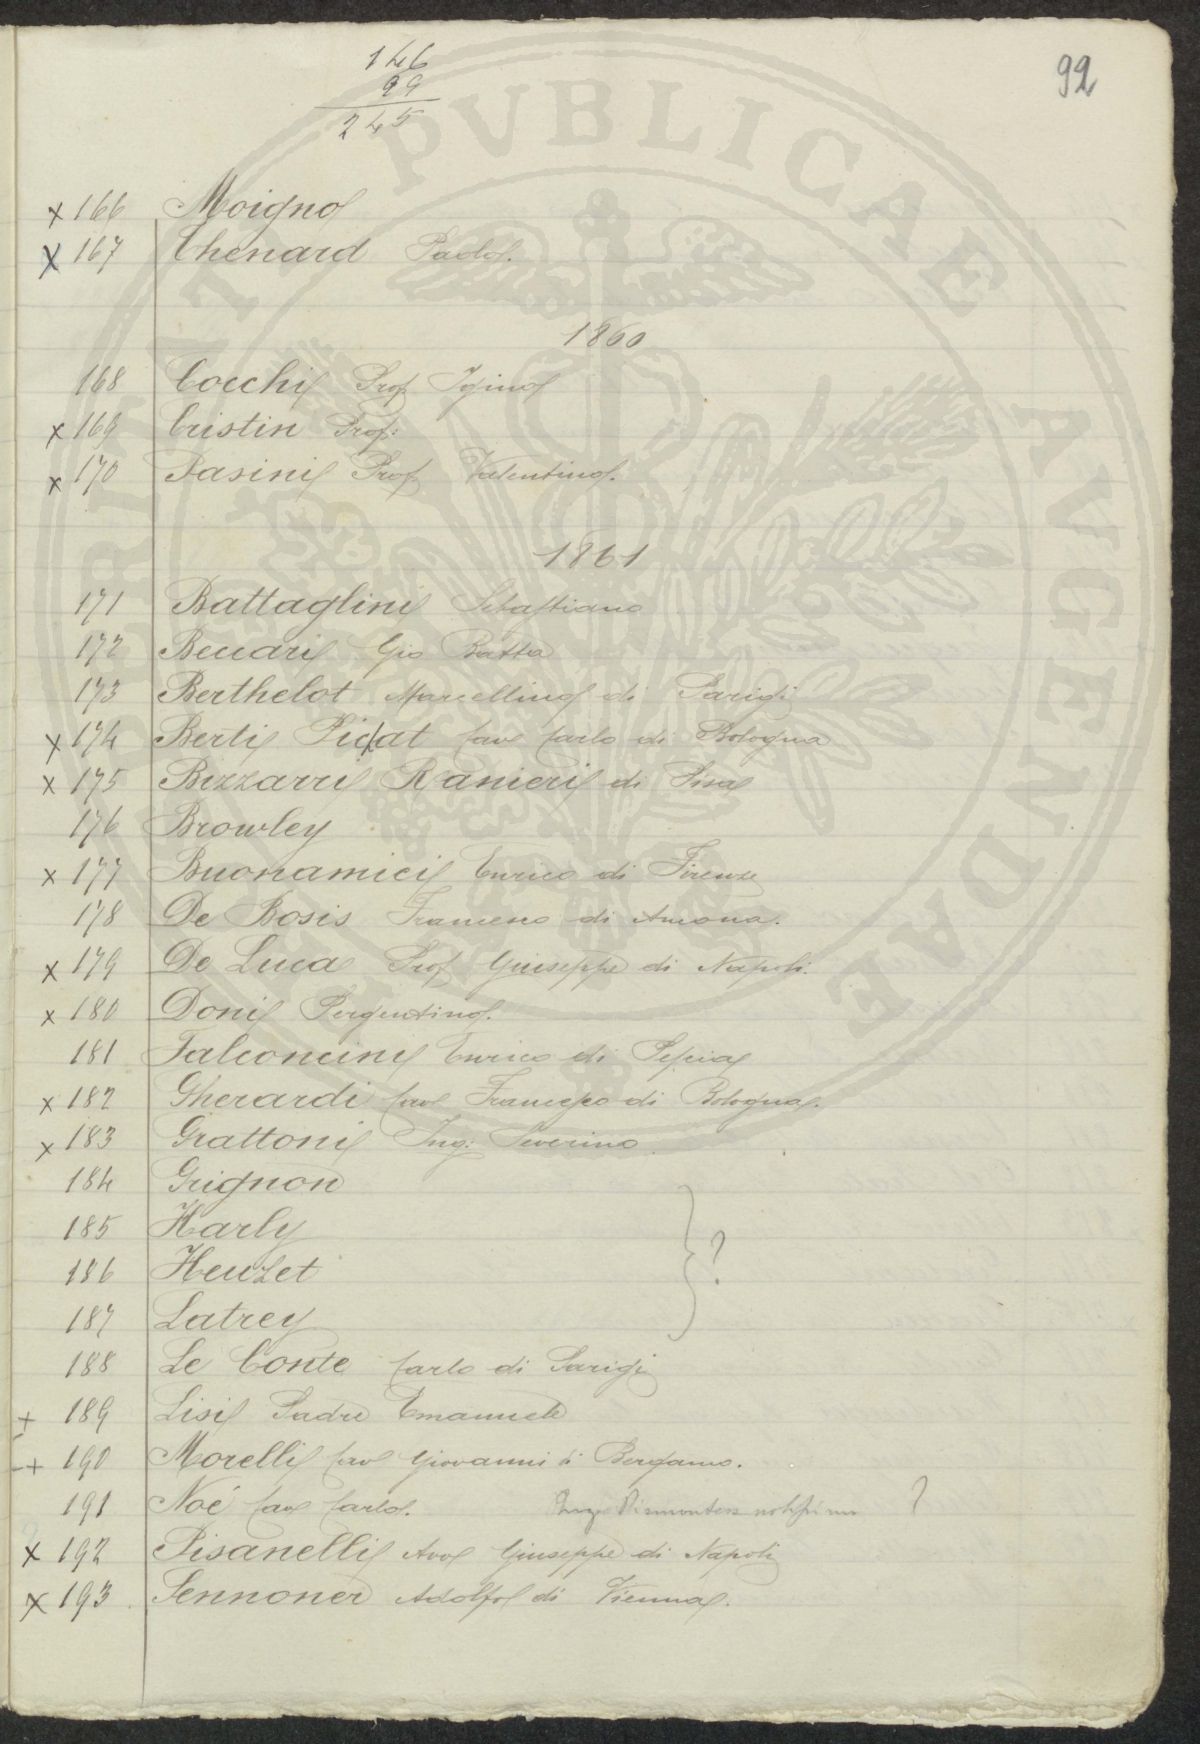 146
99
245
92
x 166 Moigno
x 167 Thenard Paolo.
1860
168 Cocchi Prof Igino
x 169 Cristin Prof:
x 170 Pasini Prof Valentino.
1861
171 Battaglini Sebastiano
172 Beccari Gio Batta
173 Berthelot Marcellino di Parigi
x 174 Berti Pichat Cav Carlo di Bologna
x 175 Bizzarri Ranieri di Pisa
176 Browley
x 177 Buonamici Enrico di Firenze
178 De Bosis Francesco di Ancona.
x 179 De Luca Prof Giuseppe di Napoli.
x 180 Doni Pergentino.
181 Falconcini Enrico di Pescia
x 182 Gherardi Cav Francesco di Bologna.
x 183 Grattoni Ing: Severino
184 Grignon
185 Harly
186 Heuzet
187 Latrey
?
188 Le Conte Carlo di Parigi
+ 189 Lisi Padre Emanuele
+ 190 Morelli Cav Giovanni di Bergamo.
191 Noé Cav Carlo. ?
x 192 Pisanelli Avv Giuseppe di Napoli
x 193 Sennoner Adolfo di Vienna.
PVBLICAE AVGENDAE